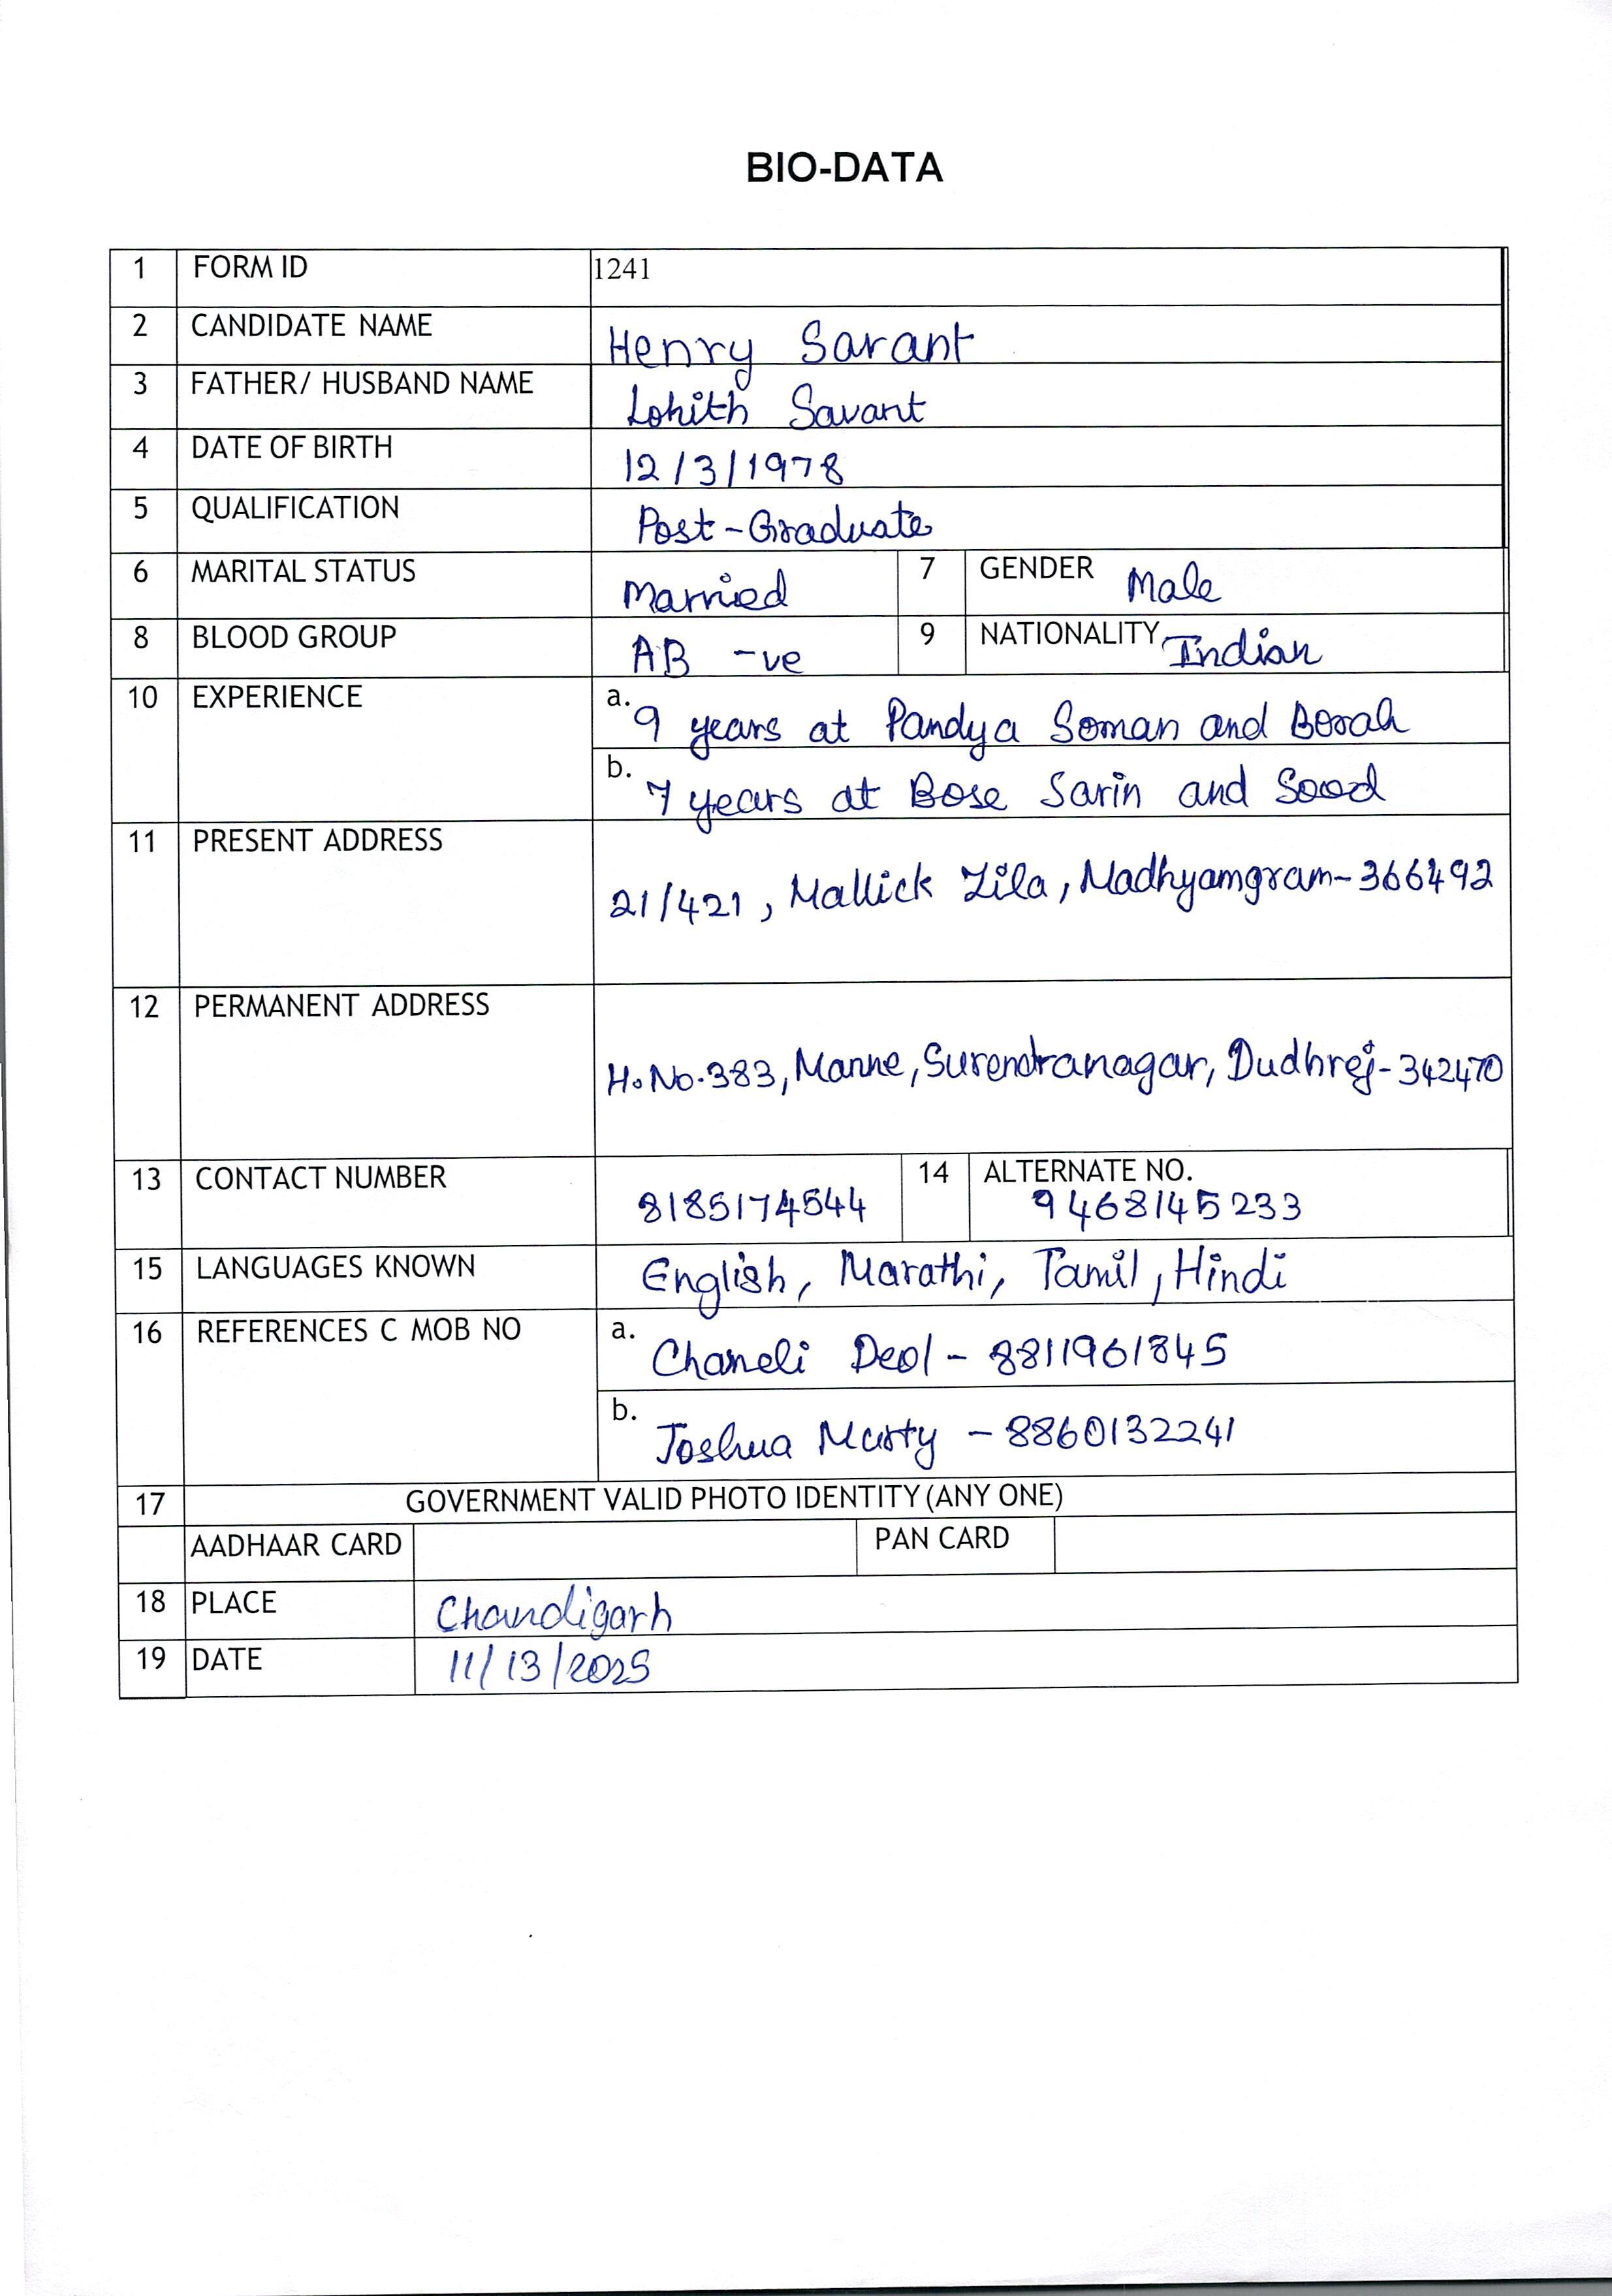 BIO-DATA
1 FORM ID 1241
2 CANDIDATE NAME Henry Savant
3 FATHER/ HUSBAND NAME Lohith Savant
4 DATE OF BIRTH 12/3/1978
5 QUALIFICATION Post-Graduate
6 MARITAL STATUS Married 7 GENDER Male
8 BLOOD GROUP AB -ve 9 NATIONALITY Indian
10 EXPERIENCE a. 9 years at Pandya Soman and Borah
b. 7 years at Bose Sarin and Sood
11 PRESENT ADDRESS
21/421, Mallick Zila, Madhyamgram-366492
12 PERMANENT ADDRESS
H.No.383, Manne, Surendranagar, Dudhrej-342470
13 CONTACT NUMBER 8185174544 14 ALTERNATE NO. 9468145233
15 LANGUAGES KNOWN English, Marathi, Tamil, Hindi
16 REFERENCES C MOB NO a. Chameli Deol - 8811961845
b. Joshua Murty - 8860132241
17 GOVERNMENT VALID PHOTO IDENTITY (ANY ONE)
AADHAAR CARD PAN CARD
18 PLACE Chandigarh
19 DATE 11/13/2025